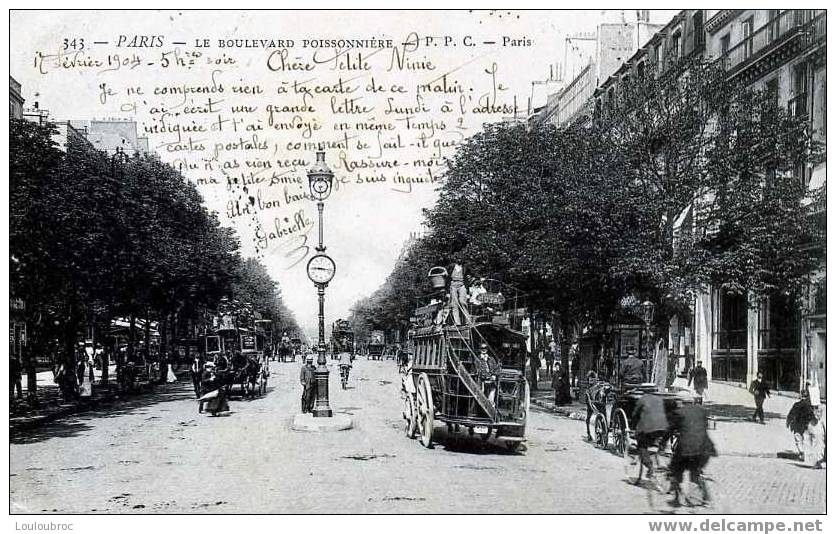 343 — PARIS — LE BOULEVARD POISSONNIÈRE — P. P. C. — Paris
17 Février 1904 - 5 hres soir Chère Petite Ninie
Je ne comprends rien à ta carte de ce matin. Je
t'ai écrit une grande lettre Lundi à l'adresse
indiquée et t'ai envoyé en même temps 2
cartes postales, comment se fait-il que
tu n'as rien reçu Rassure-moi
ma petite Ninie je suis inquiète
Un bon baiser
Gabrielle
Louloubroc
www.delcampe.net